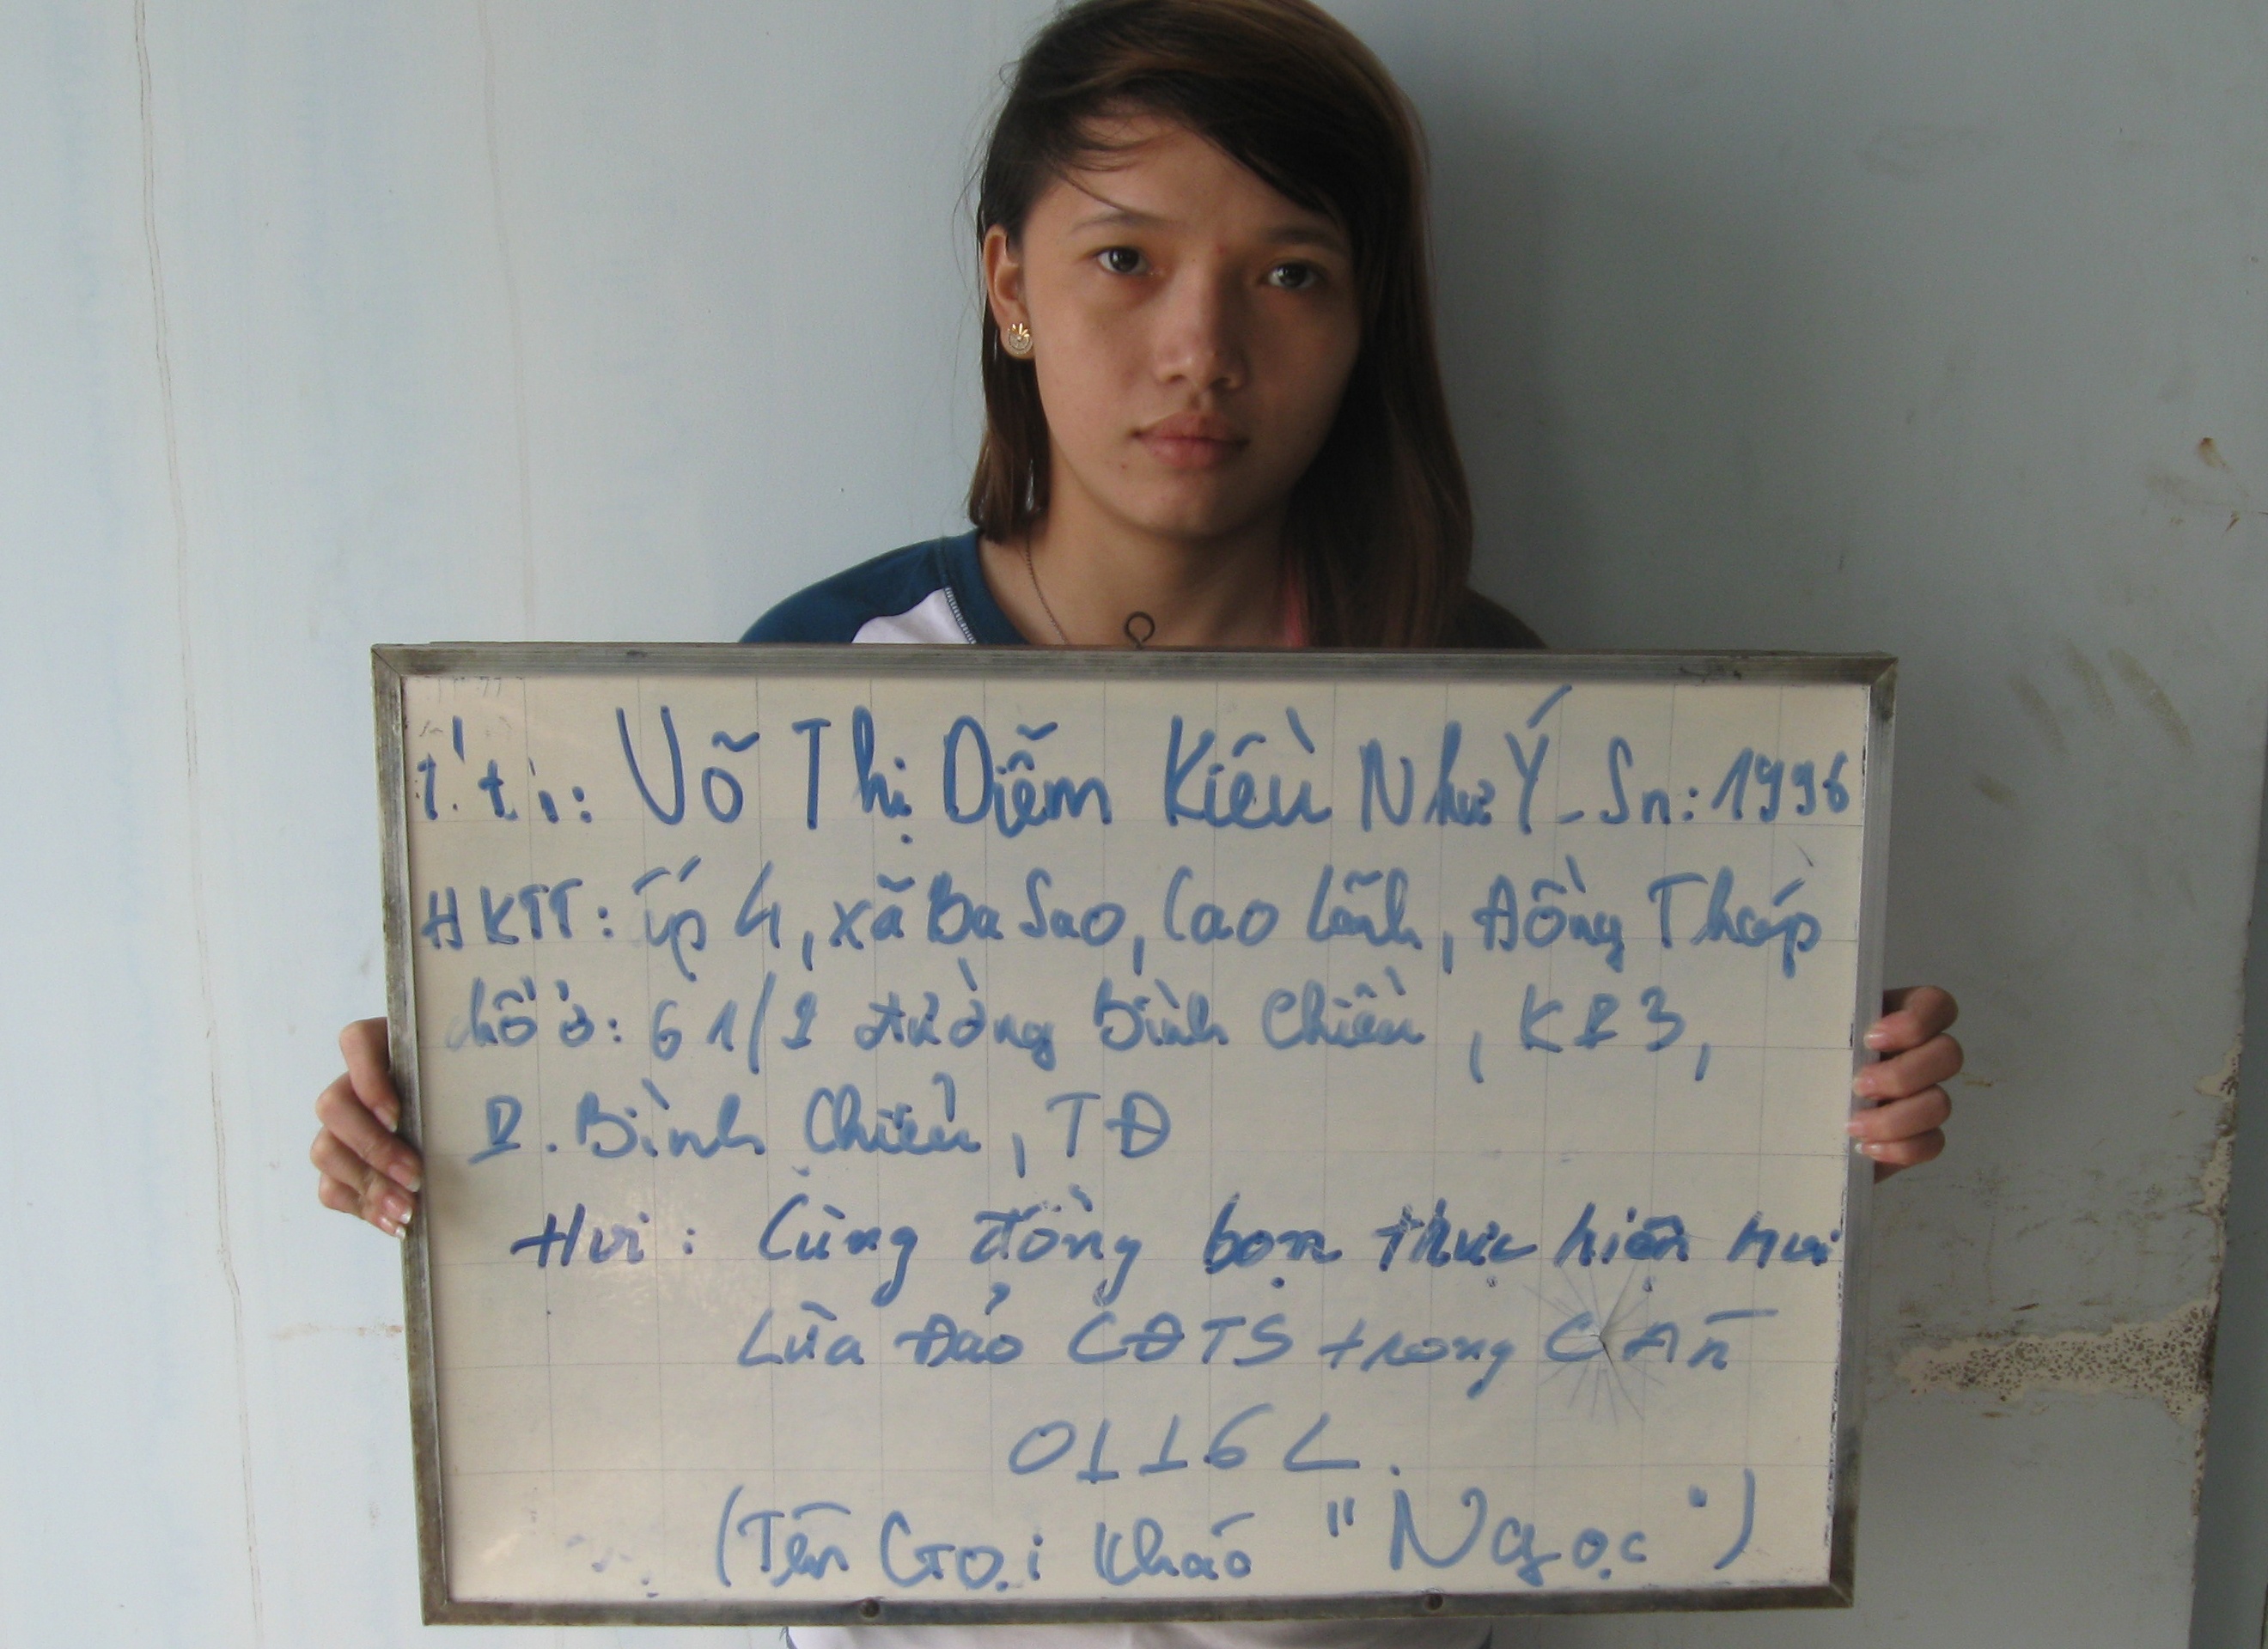 Võ Thị Diễm Kiều Như Ý - Sn: 1996
HKTT: ấp 4, xã Ba Sao, Cao Lãnh, Đồng Tháp
chỗ ở: 61/2 đường Bình Chiểu, KP3,
P. Bình Chiểu, TĐ
Hvi: Cùng đồng bọn thực hiện hvi
Lừa Đảo CĐTS trong CAn
0116L.
(Tên Gọi Khác "Ngọc")